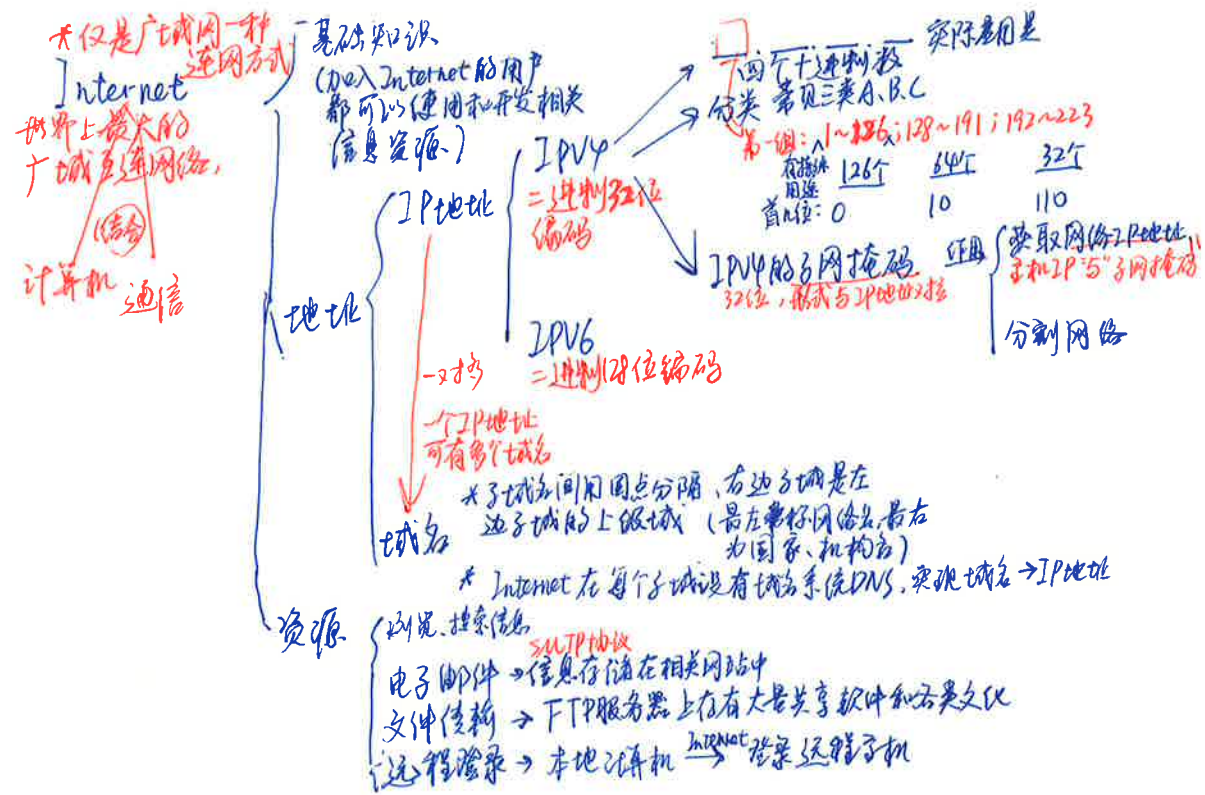 *仅是广域网一种
连网方式
Internet
世界上最大的
广域互连网络,
(结合)
计算机 通信
基础知识
(加入Internet的用户
都可以使用和开发相关
信息资源)
地址
IP地址
IPV4
二进制32位
编码
四个十进制数 实际
分类 常见三类A.B.C
第一组: 1~126;128~191;192~223
126个 64个 32个
首几位: 0 10 110
IPV4的子网掩码 作用
32位,形式与IP地址对应
获取网络IP地址
主机IP"与"子网掩码
分割网络
IPV6
二进制128位编码
一对多
一个IP地址
可有多个域名
域名
*子域名间用圆点分隔、右边子域是左
边子域的上级域 (最左常称网络名,最右
为国家、机构名)
* Internet在每个子域设有域名系统DNS,实现域名→IP地址
资源
浏览、搜索信息
SMTP协议
电子邮件→信息存储在相关网站中
文件传输→FTP服务器上存有大量共享软件和各类文化
远程登录→本地计算机 Internet→ 登录远程主机